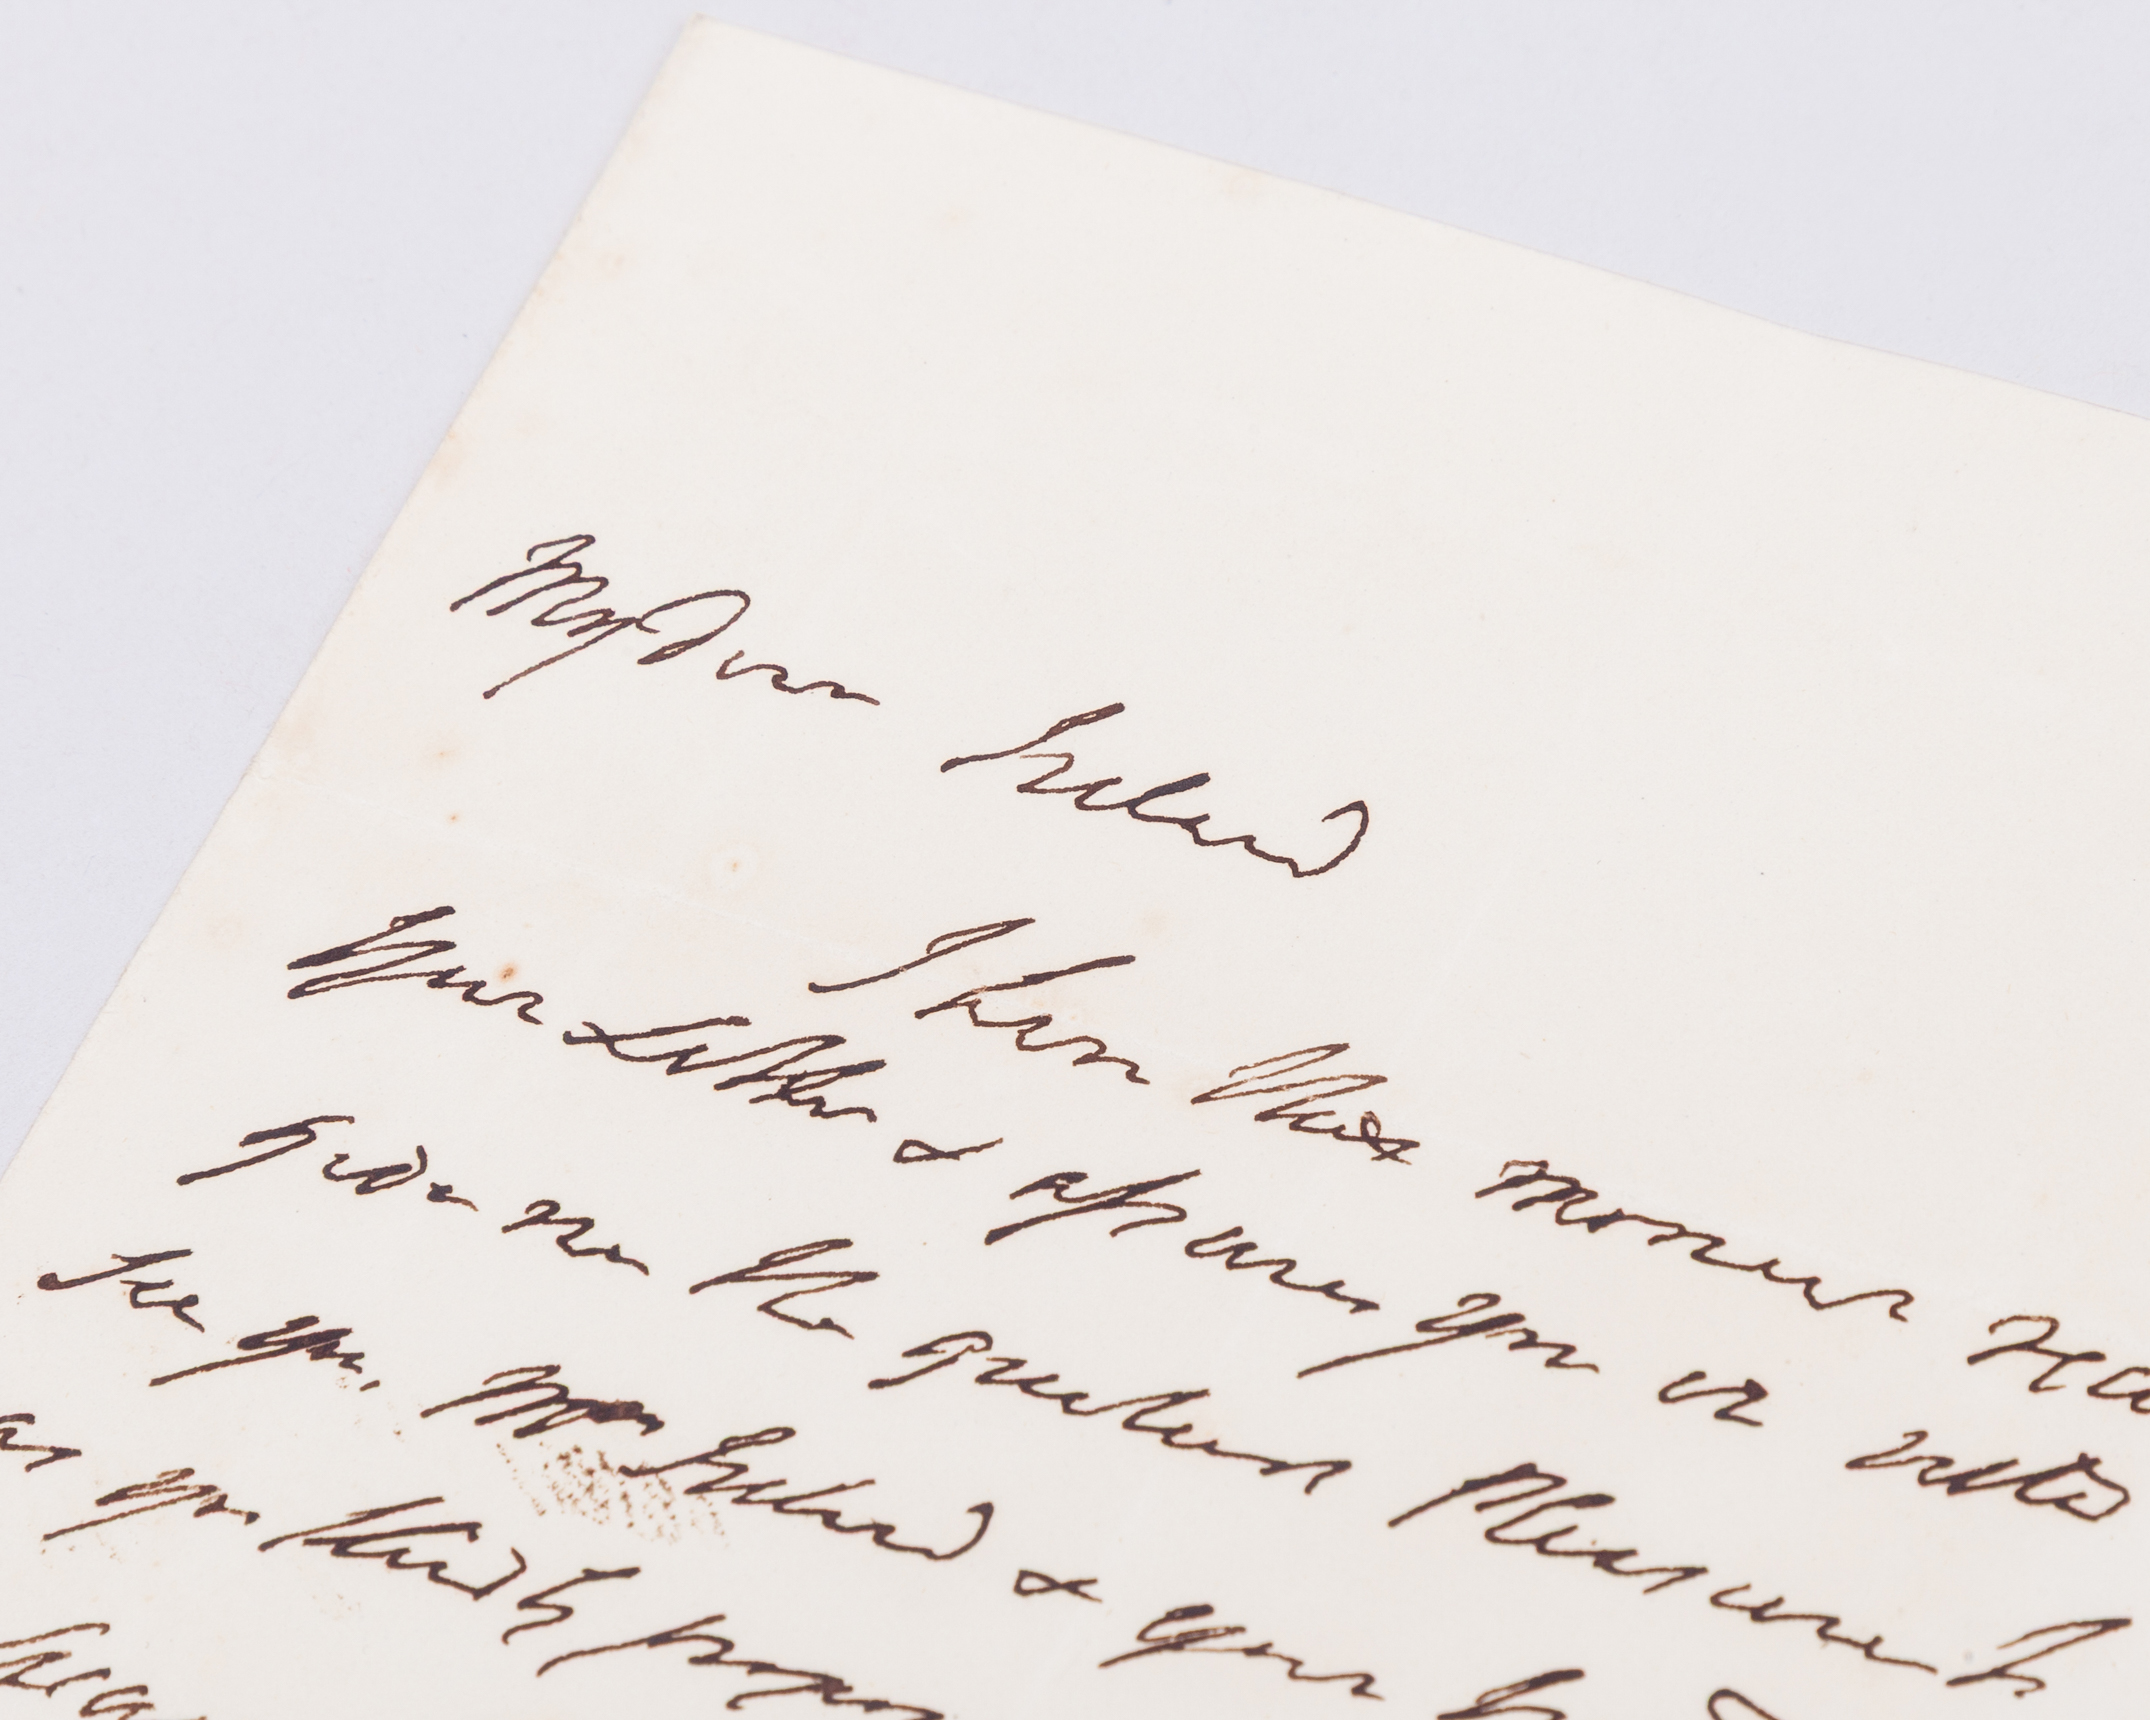 My Dear Ireland
I have this moment
your Letter & assure you it
give me the greatest Pleasure to
see you, Mrs Ireland & your
as you kindly propose